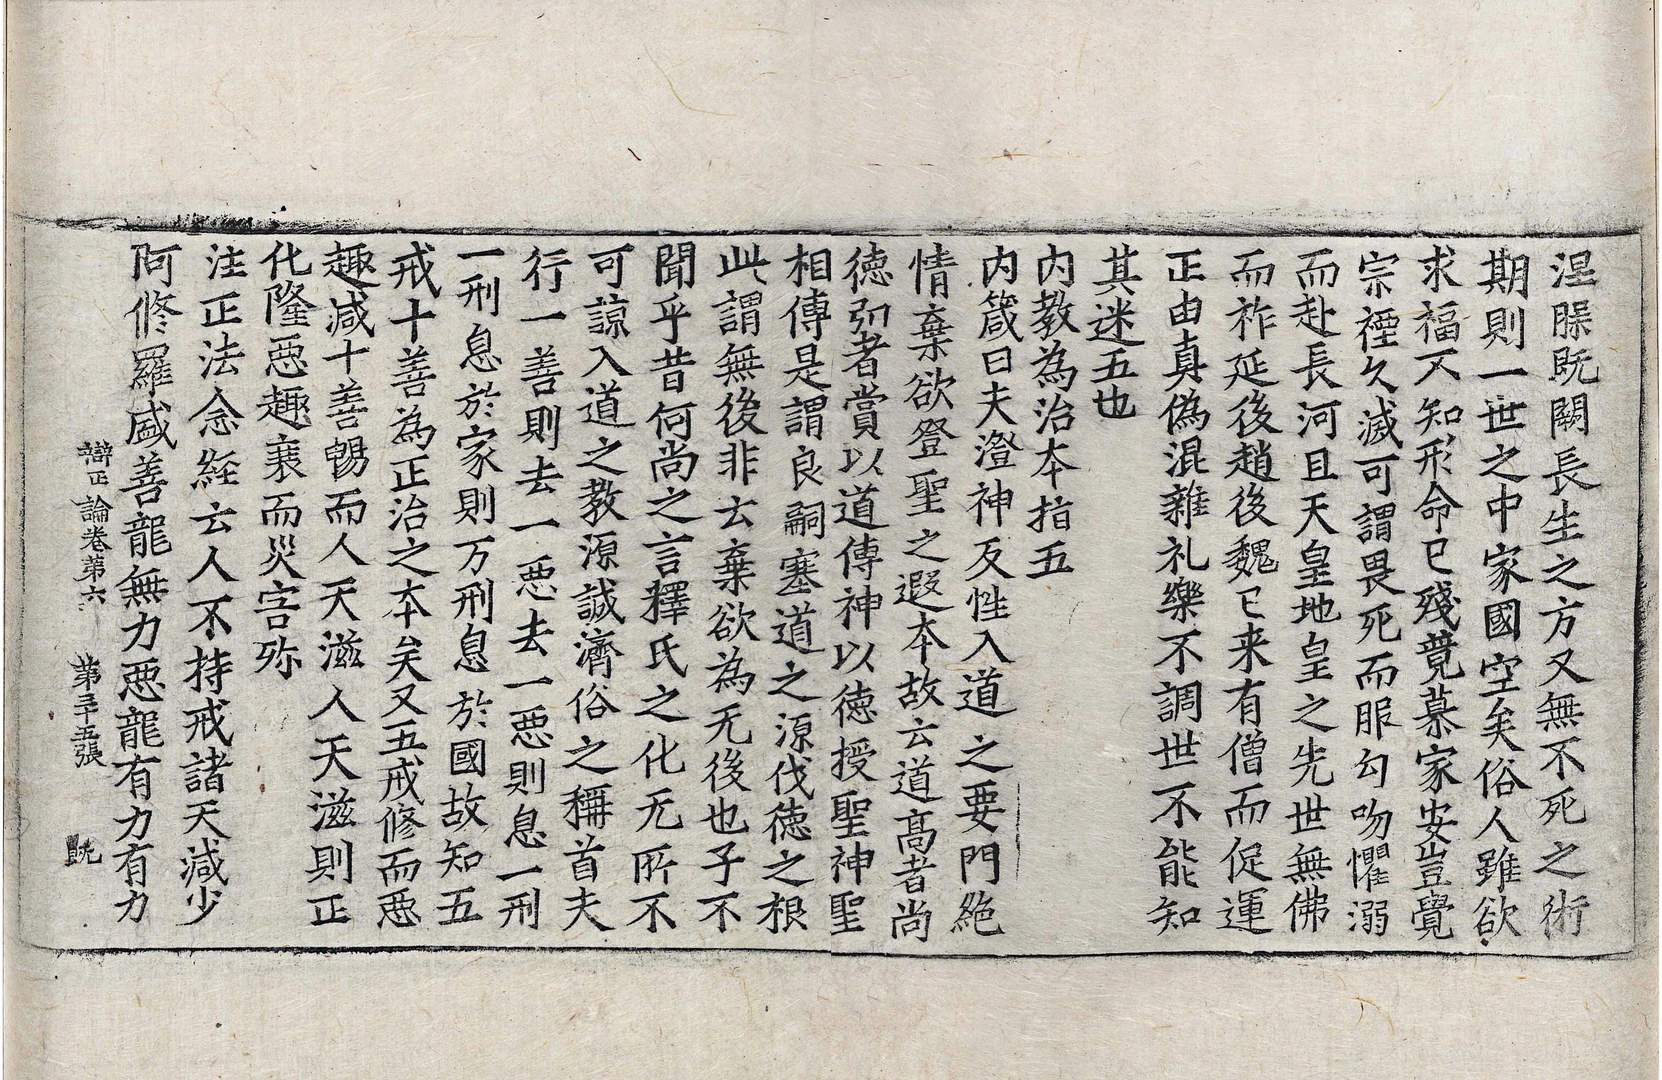 涅槃既闕長生之方又無不死之術
期則一世之中家國空矣俗人雖欲
求福不知形命已殘竟慕家安豈覺
宗禋久滅可謂畏死而服勾吻懼溺
而赴長河且天皇地皇之先世無佛
而祚延後趙後魏已来有僧而促運
正由真偽混雜礼樂不調世不能知
其迷五也
内教為治本指五
内箴曰夫澄神反性入道之要門絶
情棄欲登聖之遐本故云道髙者尚
德弘者賞以道傳神以德授聖神聖
相傳是謂良嗣塞道之源伐德之根
此謂無後非云棄欲為无後也子不
聞乎昔何尚之言釋氏之化无所不
可諒入道之教源誠濟俗之稱首夫
行一善則去一惡去一惡則息一刑
一刑息於家則万刑息於國故知五
戒十善為正治之本矣又五戒修而惡
趣減十善暢而人天滋人天滋則正
化隆惡趣衰而災害弥
注正法念経云人不持戒諸天減少
阿修羅盛善龍無力惡龍有力有力
辯正論卷第六 第三十五張 既